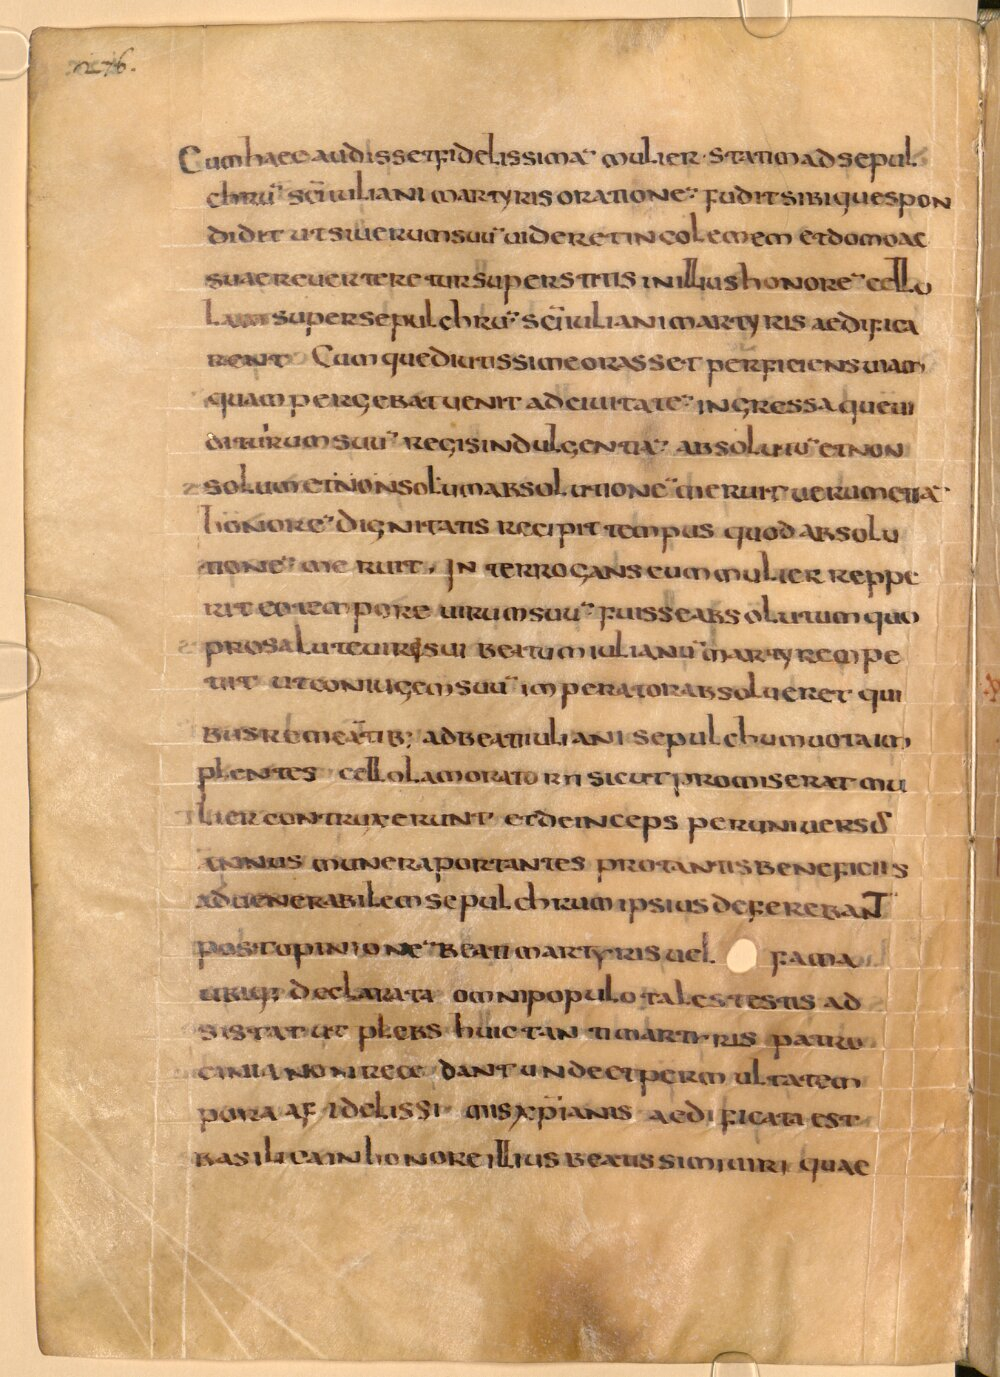 Cum haec audisset fidelissima mulier · statim ad sepul
chrū sc̄i iuliani martyris oratione᷈ fudit sibique spon
didit ut si uerum suū uideret incolemem et domo ac
suae reuerteretur superstitis in illius honorē cello
lam super sepulchrū sc̄i iuliani martyris aedifica
rent Cumque diutissime orasset perficiens uiam
quam pergebat uenit ad ciuitatē ingressaque
uirum suū regis indulgentiā absolutū et non
solum et non solum absolutionē meruit uerum etiā
honorē dignitatis recipit tempus quod absolu
tionē meruit, Interrogans eum mulier reppe
rit eo tempore uirum suū fuisse absolutum quo
pro salute uiri sui beatum iulianū martyrem pe
tiit ut coniugem suū imperator absolueret qui
bus remeatib; ad beati iuliani sepulchum uota im
plentes cellolam oratorii sicut promiserat mu
lier contruxerunt et deinceps per uniuersos
annus munera portantes pro tantis beneficiis
ad uenerabilem sepulchrum ipsius deferebant
post opinionē beati martyris uel fama
ubiq; declarata omni populo tales testis ad
sistat ut plebs huic tanti martyris patro
cinia non recedant unde et per multa tem
pora a fidelissimis xp̄ianis aedificata est
basilica in honore illius beatissimi uiri quae